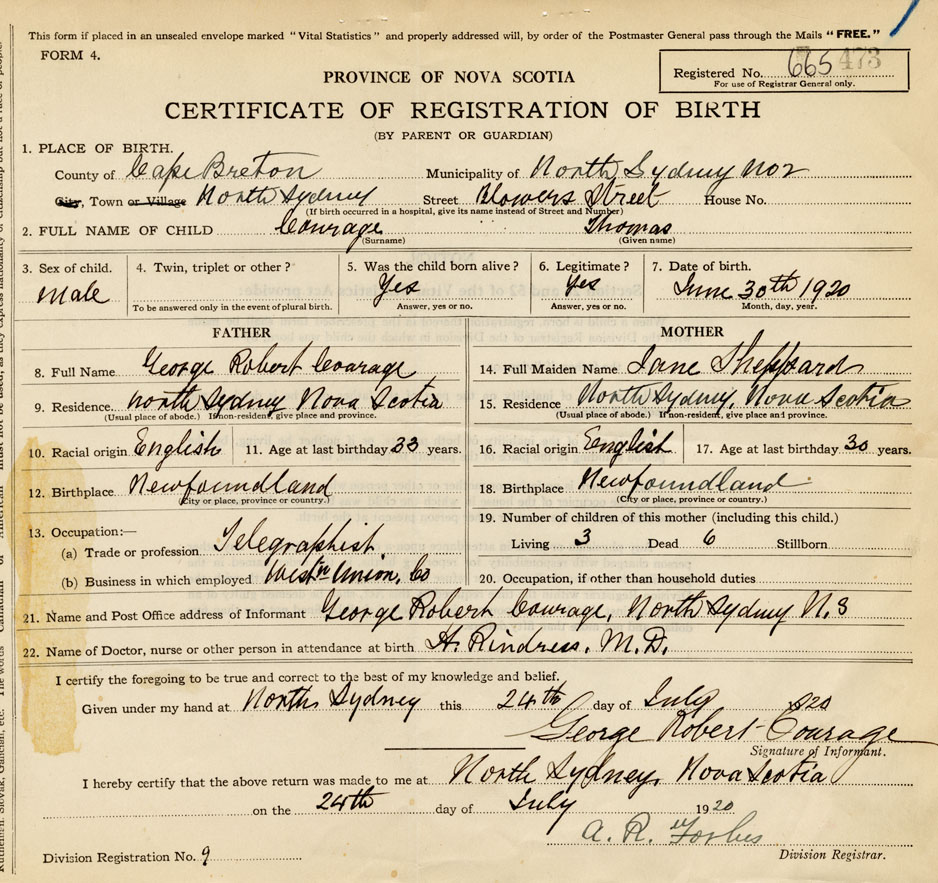 This form if placed in an unsealed envelope marked "Vital Statistics" and properly addressed will, by order of the Postmaster General pass through the Mails "FREE."
FORM 4.
Registered No. 665 473
For use of Registrar General only.
PROVINCE OF NOVA SCOTIA
CERTIFICATE OF REGISTRATION OF BIRTH
(BY PARENT OR GUARDIAN)
1. PLACE OF BIRTH.
County of Cape Breton Municipality of North Sydney No 2
City, Town or Village North Sydney Street Blowers Street House No.
(If birth occurred in a hospital, give its name instead of Street and Number)
2. FULL NAME OF CHILD Courage Thomas
(Surname) (Given name)
3. Sex of child. 4. Twin, triplet or other? 5. Was the child born alive? 6. Legitimate? 7. Date of birth.
Male Yes Yes June 30th 1920
To be answered only in the event of plural birth. Answer, yes or no. Answer, yes or no. Month, day, year.
FATHER MOTHER
8. Full Name George Robert Courage 14. Full Maiden Name Jane Sheppard
9. Residence. North Sydney Nova Scotia 15. Residence North Sydney, Nova Scotia
(Usual place of abode.) If non-resident, give place and province. (Usual place of abode.) If non-resident, give place and province.
10. Racial origin English 11. Age at last birthday 33 years. 16. Racial origin English 17. Age at last birthday 30 years.
12. Birthplace Newfoundland 18. Birthplace Newfoundland
(City or place, province or country.) (City or place, province or country.)
13. Occupation:— 19. Number of children of this mother (including this child.)
(a) Trade or profession Telegraphist. Living 3 Dead 6 Stillborn
(b) Business in which employed West'n Union, Co 20. Occupation, if other than household duties
21. Name and Post Office address of Informant George Robert Courage, North Sydney N.S
22. Name of Doctor, nurse or other person in attendance at birth H. Rindress. M.D.
I certify the foregoing to be true and correct to the best of my knowledge and belief.
Given under my hand at North Sydney this 24th day of July 1920
George Robert Courage
Signature of Informant.
I hereby certify that the above return was made to me at North Sydney, Nova Scotia
on the 24th day of July 1920
A. R. Forbes
Division Registration No. 9 Division Registrar.